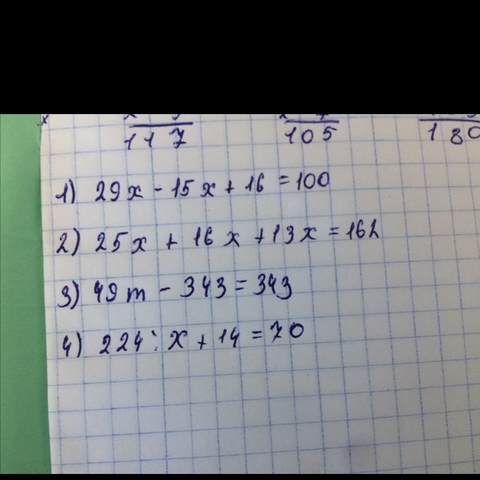 117 105 180
1) 29x - 15x + 16 = 100
2) 25x + 16x + 13x = 162
3) 49m - 343 = 343
4) 224 : x + 14 = 70